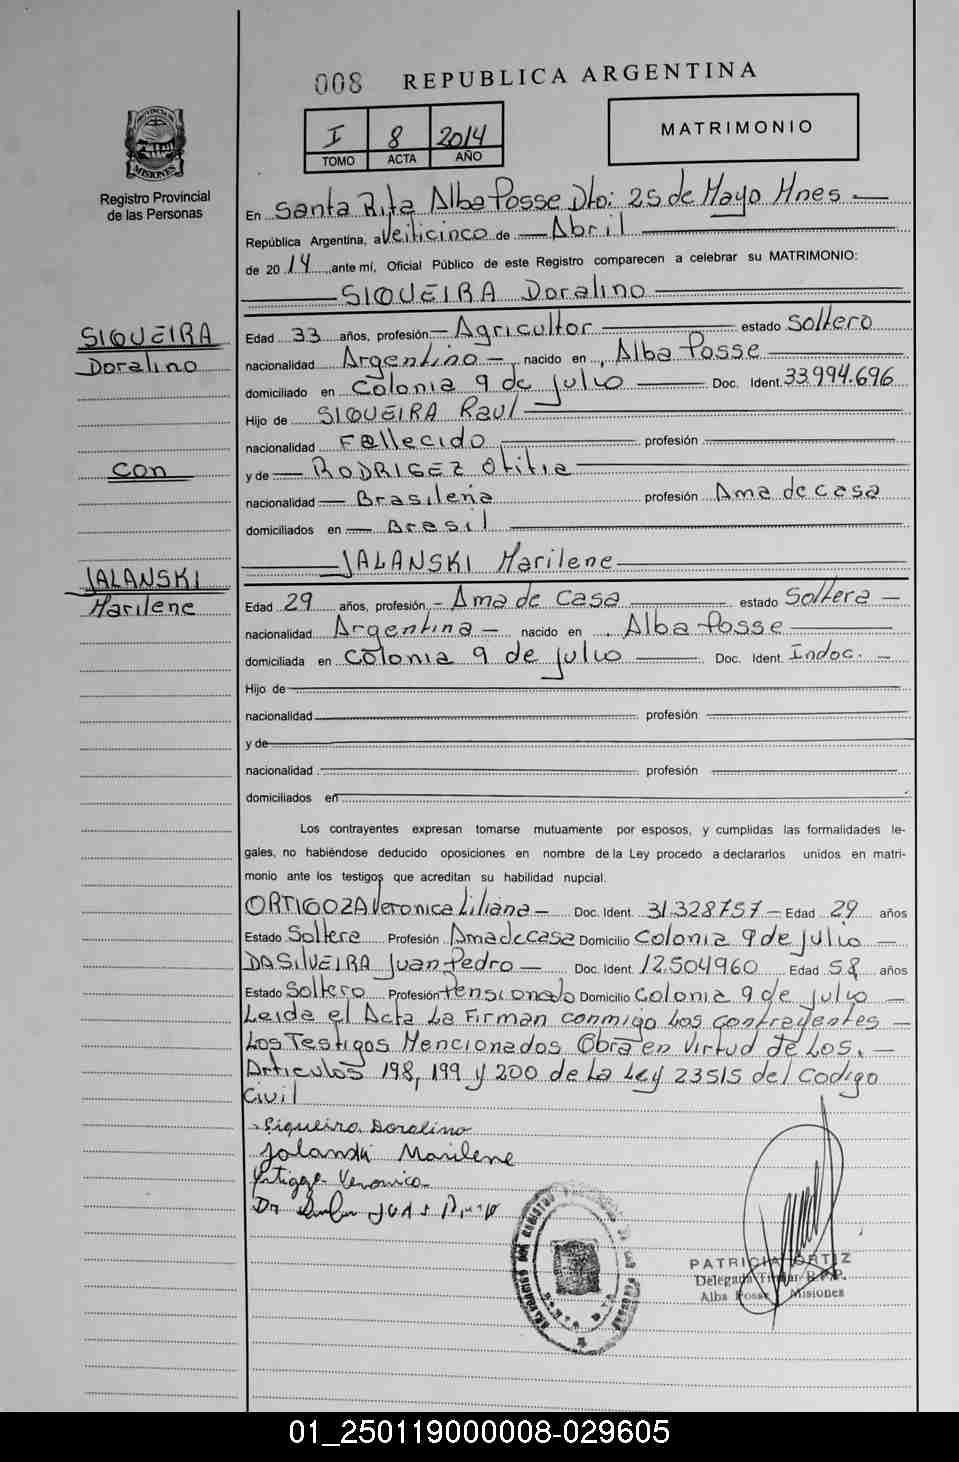 008 REPUBLICA ARGENTINA
I 8 2014
TOMO ACTA AÑO
MATRIMONIO
PROVINCIA DE
MISIONES
Registro Provincial
de las Personas
En Santa Rita Alba Posse Dto: 25 de Mayo Mnes
República Argentina, a Veiticinco de Abril
de 2014 ante mí, Oficial Público de este Registro comparecen a celebrar su MATRIMONIO:
SIQUEIRA Doralino
SIQUEIRA
Doralino
con
JALANSKI
Marilene
Edad 33 años, profesión Agricultor estado Soltero
nacionalidad Argentino nacido en Alba Posse
domiciliado en Colonia 9 de julio Doc. Ident. 33.994.696
Hijo de SIQUEIRA Raul
nacionalidad Fallecido profesión
y de RODRIGEZ Otitia
nacionalidad Brasileña profesión Ama de casa
domiciliados en Brasil
JALANSKI Marilene
Edad 29 años, profesión Ama de casa estado Soltera
nacionalidad Argentina nacido en Alba Posse
domiciliada en Colonia 9 de julio Doc. Ident. Indoc.
Hijo de
nacionalidad profesión
y de
nacionalidad profesión
domiciliados en
Los contrayentes expresan tomarse mutuamente por esposos, y cumplidas las formalidades le-
gales, no habiéndose deducido oposiciones en nombre de la Ley procedo a declararlos unidos en matri-
monio ante los testigos que acreditan su habilidad nupcial.
ORTIGOZA Veronica Liliana Doc. Ident. 31.328757 Edad 29 años
Estado Soltera Profesión Ama de casa Domicilio Colonia 9 de julio
DASILVEIRA Juan Pedro Doc. Ident. 12.504960 Edad 58 años
Estado Soltero Profesión Pensionado Domicilio Colonia 9 de julio
Leida el Acta La Firman conmigo Los contrayentes
Los Testigos Mencionados Obra en Virtud de Los.
Articulos 198, 199 y 200 de La Ley 23515 del Codigo
Civil
Siqueira Doralino
Jalanski Marilene
Veronica
PATRICIA ORTIZ
Delegada Titular R.P.P.
Alba Posse Misiones
01_250119000008-029605